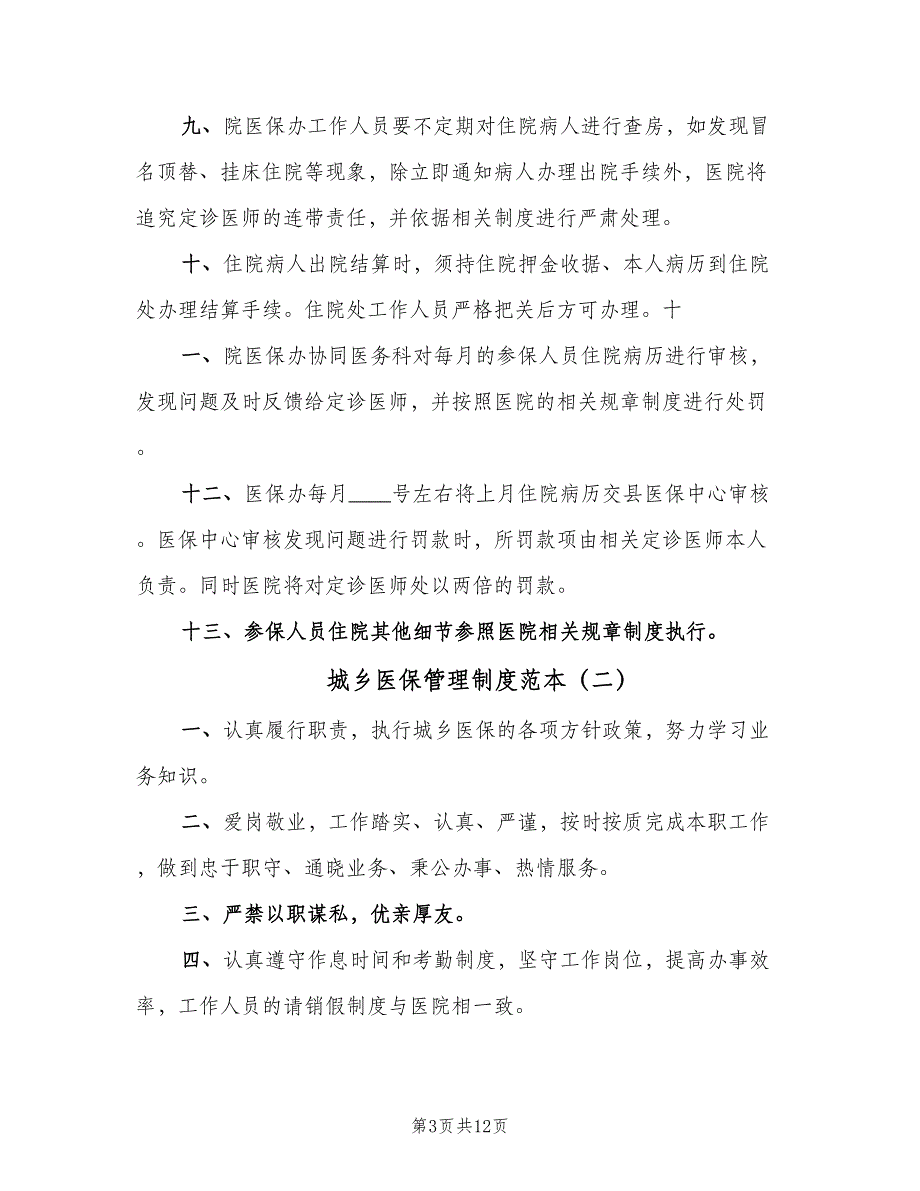 九、院医保办工作人员要不定期对住院病人进行查房，如发现冒
名顶替、挂床住院等现象，除立即通知病人办理出院手续外，医院将
追究定诊医师的连带责任，并依据相关制度进行严肃处理。
十、住院病人出院结算时，须持住院押金收据、本人病历到住院
处办理结算手续。住院处工作人员严格把关后方可办理。十
一、院医保办协同医务科对每月的参保人员住院病历进行审核，
发现问题及时反馈给定诊医师，并按照医院的相关规章制度进行处罚
。
十二、医保办每月____号左右将上月住院病历交县医保中心审核
。医保中心审核发现问题进行罚款时，所罚款项由相关定诊医师本人
负责。同时医院将对定诊医师处以两倍的罚款。
十三、参保人员住院其他细节参照医院相关规章制度执行。
城乡医保管理制度范本（二）
一、认真履行职责，执行城乡医保的各项方针政策，努力学习业
务知识。
二、爱岗敬业，工作踏实、认真、严谨，按时按质完成本职工作
，做到忠于职守、通晓业务、秉公办事、热情服务。
三、严禁以职谋私，优亲厚友。
四、认真遵守作息时间和考勤制度，坚守工作岗位，提高办事效
率，工作人员的请销假制度与医院相一致。
第3页共12页